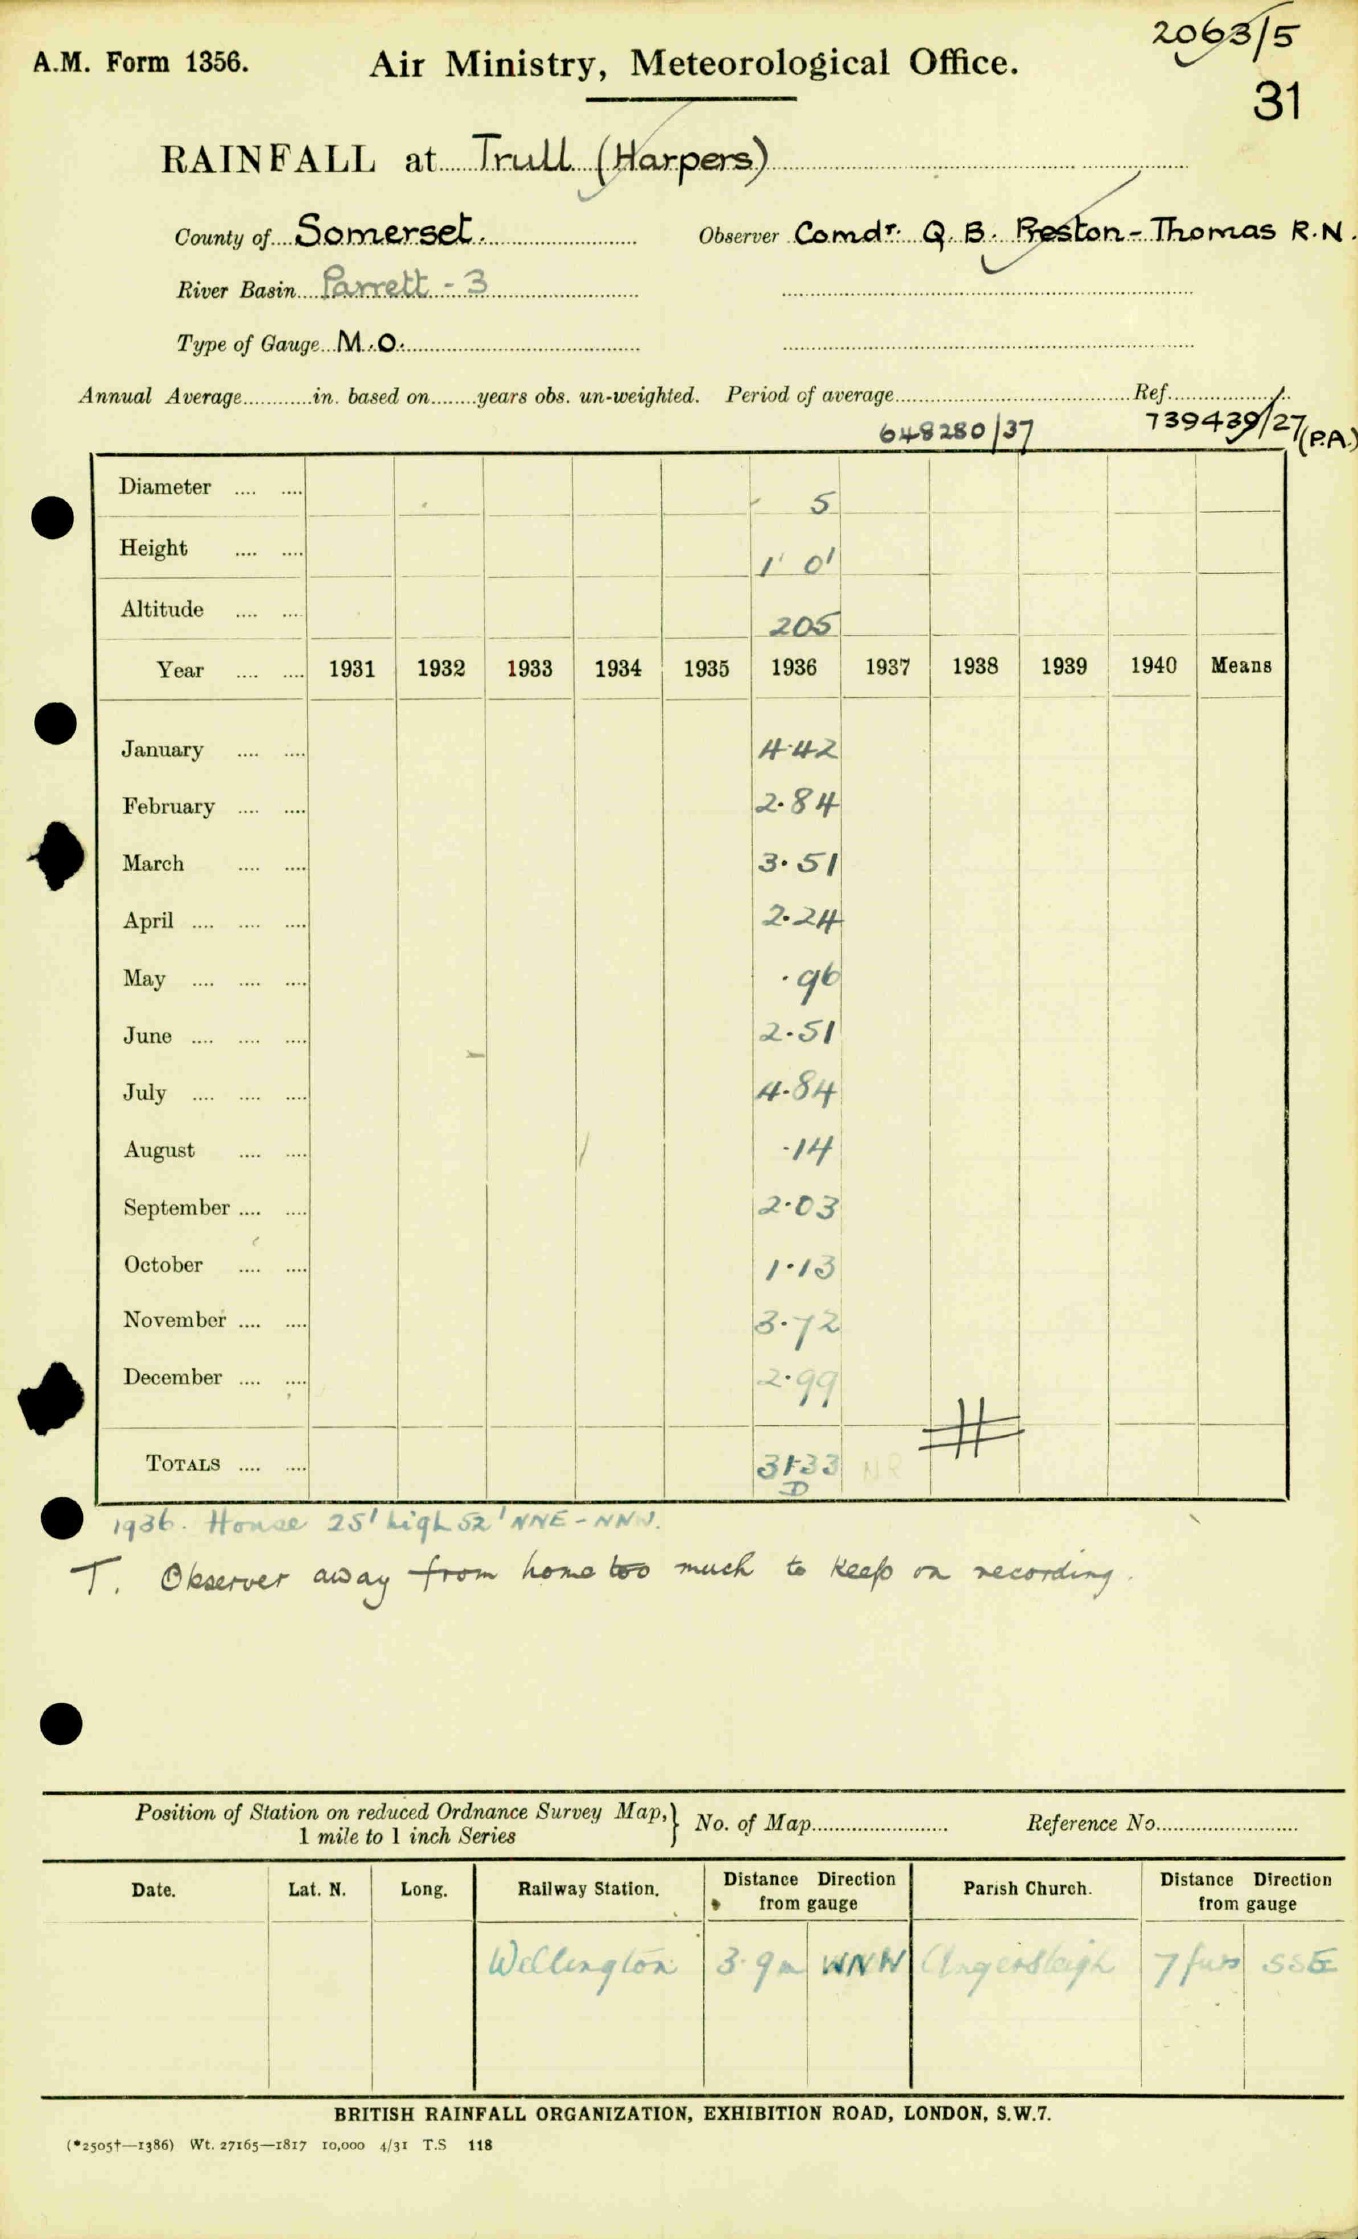 2063/5
A.M. Form 1356. Air Ministry, Meteorological Office.
31
RAINFALL at Trull (Harpers)
County of Somerset. Observer Comdr. Q. B. Preston-Thomas R.N.
River Basin Parrett - 3
Type of Gauge M.O.
Annual Average............in. based on........years obs. un-weighted. Period of average........................................Ref.....................
648280/37 739439/27 (P.A.)
Diameter .... .... 5
Height .... .... 1' 0'
Altitude .... .... 205
Year .... .... 1931 1932 1933 1934 1935 1936 1937 1938 1939 1940 Means
January .... .... 4.42
February .... .... 2.84
March .... .... 3.51
April .... .... .... 2.24
May .... .... .... .96
June .... .... .... 2.51
July .... .... .... 4.84
August .... .... .14
September .... .... 2.03
October .... .... 1.13
November .... .... 3.72
December .... .... 2.99
TOTALS .... .... 31.33 NR
D
1936. House 25' high 52' NNE - NNW.
T. Observer away from home too much to keep on recording.
Position of Station on reduced Ordnance Survey Map,} No. of Map........................ Reference No.........................
1 mile to 1 inch Series
Date. Lat. N. Long. Railway Station. Distance Direction from gauge Parish Church. Distance Direction from gauge
Wellington 3.9m WNW Angersleigh 7 furs SSE
BRITISH RAINFALL ORGANIZATION, EXHIBITION ROAD, LONDON, S.W.7.
(*2505†—1386) Wt. 27165—1817 10,000 4/31 T.S 118